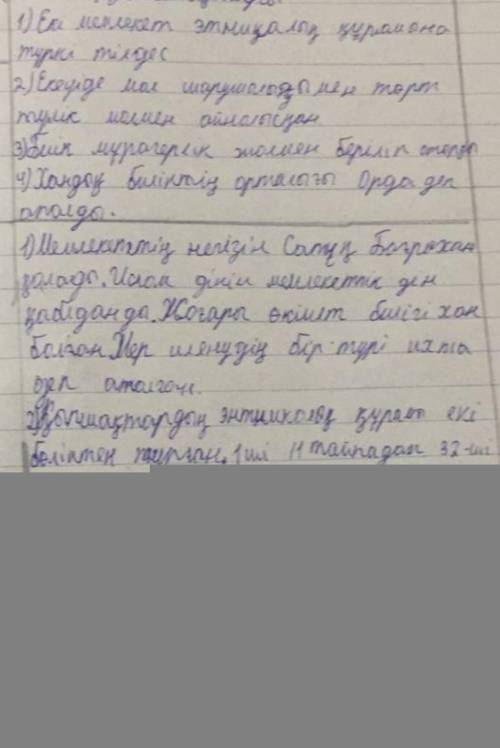 1) Екі мемлекет этникалық құрамына
түркі тілдес
2) Екеуіде мал шаруашылығымен төрт
түлік малмен айналысқан
3) Билік мұрагерлік жолмен беріліп отырды
4) Хандық биліктің орталығы Орда деп
аталды.
1) Мемлекеттің негізін Сатұқ Боғрахан
қалады. Ислам дінін мемлекеттік ден
қабілданды. Жоғары өкімет билігі хан
болған. Жер иленудің бір түрі ихта
деп аталған.
2) Қыпшақтардың этникалық құрамы екі
бөліктен тұрған. 1 ші 11 тайпадан 32-ші